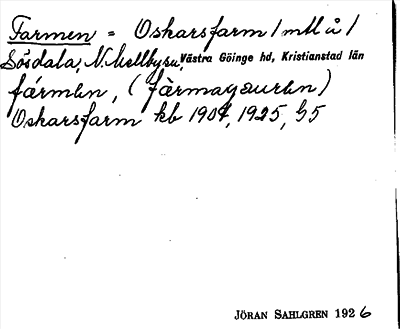 Farmen = Oskarsfarm / mtl å /
Sösdala, N. Mellby sn, Västra Göinge hd, Kristianstad län
fármən, (fàrmagaurən)
Oskarsfarm kb 1904, 1925, 55
JÖRAN SAHLGREN 1926